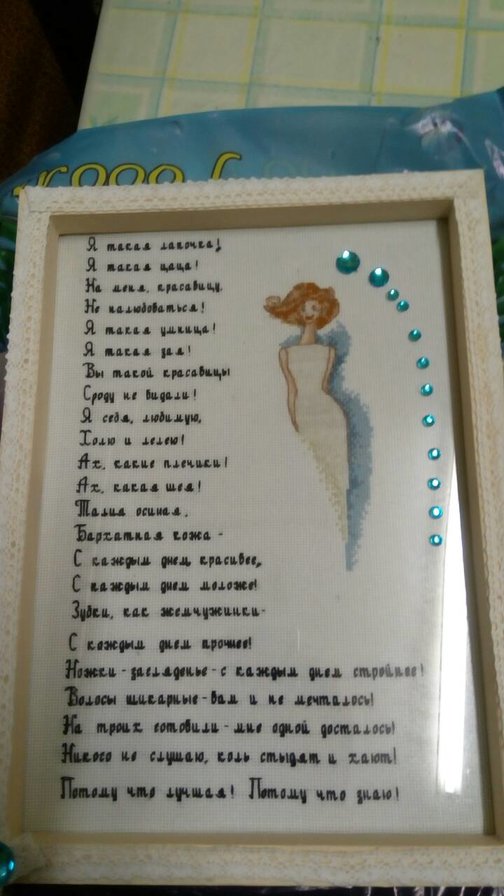 Я такая лапочка!
Я такая цаца!
На меня, красавицу,
Не налюбоваться!
Я такая умница!
Я такая зая!
Вы такой красавицы
Сроду не видали!
Я себя, любимую,
Холю и лелею!
Ах, какие плечики!
Ах, какая шея!
Талия осиная,
Бархатная кожа -
С каждым днем красивее,
С каждым днем моложе!
Зубки, как жемчужинки-
С каждым днем прочнее!
Ножки - загляденье - с каждым днем стройнее!
Волосы шикарные - вам и не мечталось!
На троих готовили - мне одной досталось!
Никого не слушаю, коль стыдят и хают!
Потому что лучшая! Потому что знаю!